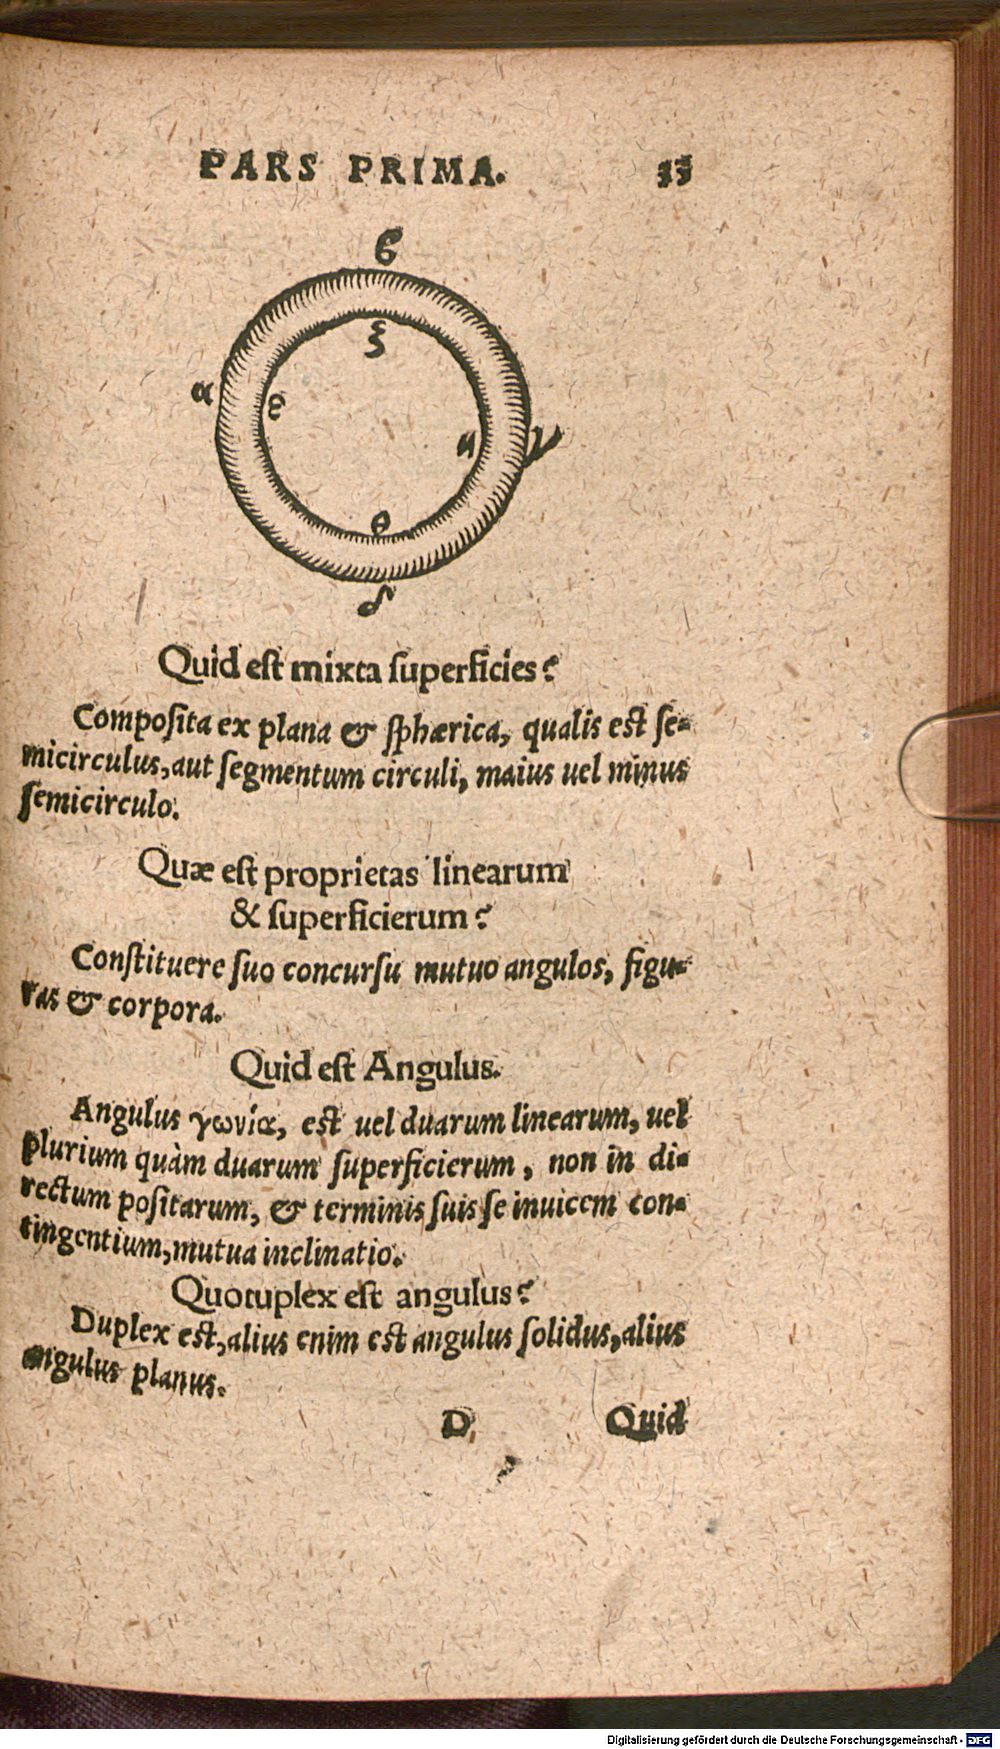 PARS PRIMA. 33
ϐ
ξ
α
ε
η
γ
θ
δ
Quid eſt mixta ſuperficies?
Compoſita ex plana & ſphærica, qualis est ſe-
micirculus, aut ſegmentum circuli, maius uel minus
ſemicirculo.
Quæ eſt proprietas linearum
& ſuperficierum?
Conſtituere ſuo concurſu mutuo angulos, figu-
ras & corpora.
Quid eſt Angulus.
Angulus γωνία, est uel duarum linearum, uel
plurium quàm duarum ſuperficierum, non in di-
rectum poſitarum, & terminis ſuis ſe inuicem con-
tingentium, mutua inclinatio.
Quotuplex eſt angulus?
Duplex est, alius enim est angulus ſolidus, alius
angulus planus.
D Quid
Digitalisierung gefördert durch die Deutsche Forschungsgemeinschaft - DFG